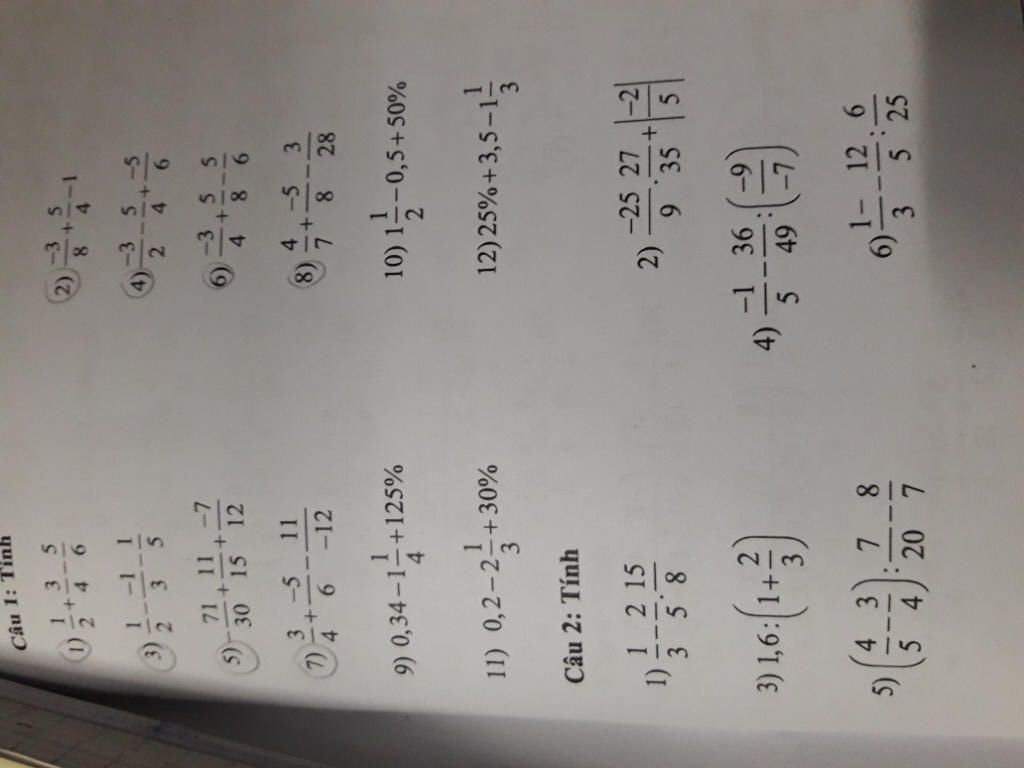 Câu 1: Tính
1) \frac{1}{2}+\frac{3}{4}-\frac{5}{6} 2) \frac{-3}{8}+\frac{5}{4}-1
3) \frac{1}{2}-\frac{-1}{3}-\frac{1}{5} 4) \frac{-3}{2}-\frac{5}{4}+\frac{-5}{6}
5) -\frac{71}{30}+\frac{11}{15}+\frac{-7}{12} 6) \frac{-3}{4}+\frac{5}{8}-\frac{5}{6}
7) \frac{3}{4}+\frac{-5}{6}-\frac{11}{-12} 8) \frac{4}{7}+\frac{-5}{8}-\frac{3}{28}
9) 0,34-1\frac{1}{4}+125% 10) 1\frac{1}{2}-0,5+50%
11) 0,2-2\frac{1}{3}+30% 12) 25%+3,5-1\frac{1}{3}
Câu 2: Tính
1) \frac{1}{3}-\frac{2}{5}.\frac{15}{8} 2) \frac{-25}{9}.\frac{27}{35}+|\frac{-2}{5}|
3) 1,6:(1+\frac{2}{3}) 4) \frac{-1}{5}-\frac{36}{49}:(\frac{-9}{-7})
5) (\frac{4}{5}-\frac{3}{4}):\frac{7}{20}-\frac{8}{7} 6) \frac{1-}{3}-\frac{12}{5}:\frac{6}{25}